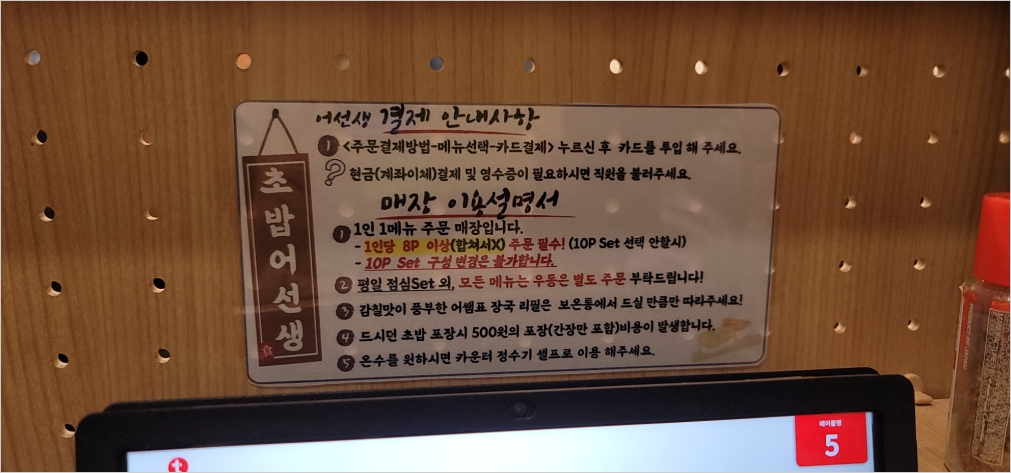 초밥어선생
食
어선생 결제 안내사항
1 <주문결제방법-메뉴선택-카드결제> 누르신 후 카드를 투입 해 주세요.
? 현금(계좌이체)결제 및 영수증이 필요하시면 직원을 불러주세요.
매장 이용설명서
1 1인 1메뉴 주문 매장입니다.
- 1인당 8P 이상(합쳐서X) 주문 필수! (10P Set 선택 안할시)
- 10P Set 구성 변경은 불가합니다.
2 평일 점심Set 외, 모든 메뉴는 우동은 별도 주문 부탁드립니다!
3 감칠맛이 풍부한 어쌤표 장국 리필은 보온통에서 드실 만큼만 따라주세요!
4 드시던 초밥 포장시 500원의 포장(간장만 포함)비용이 발생합니다.
5 온수를 원하시면 카운터 정수기 셀프로 이용 해주세요.
테이블명
5
t